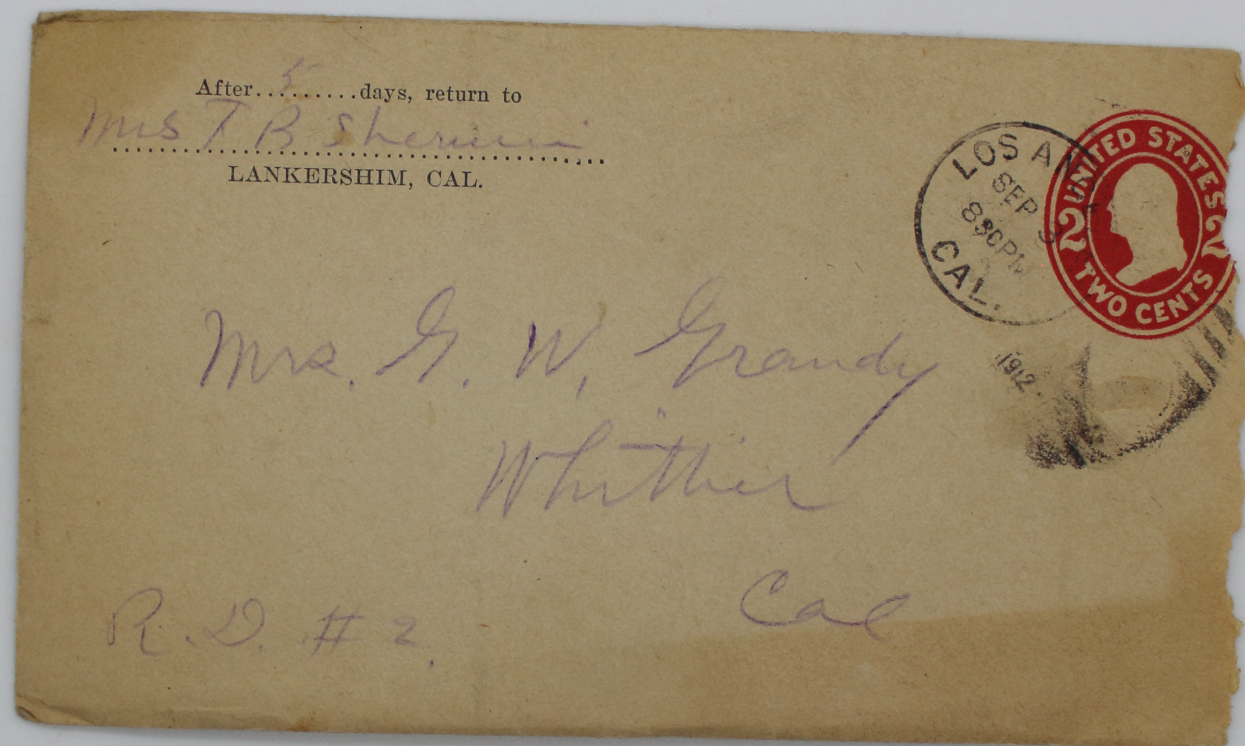 After..5.......days, return to
Mrs T B Sherwin
LANKERSHIM, CAL.
LOS AN
SEP 3
830PM
CAL.
1912
UNITED STATES
2 2
TWO CENTS
Mrs. G. W. Grandy
Whittier
Cal
R.D. #2.